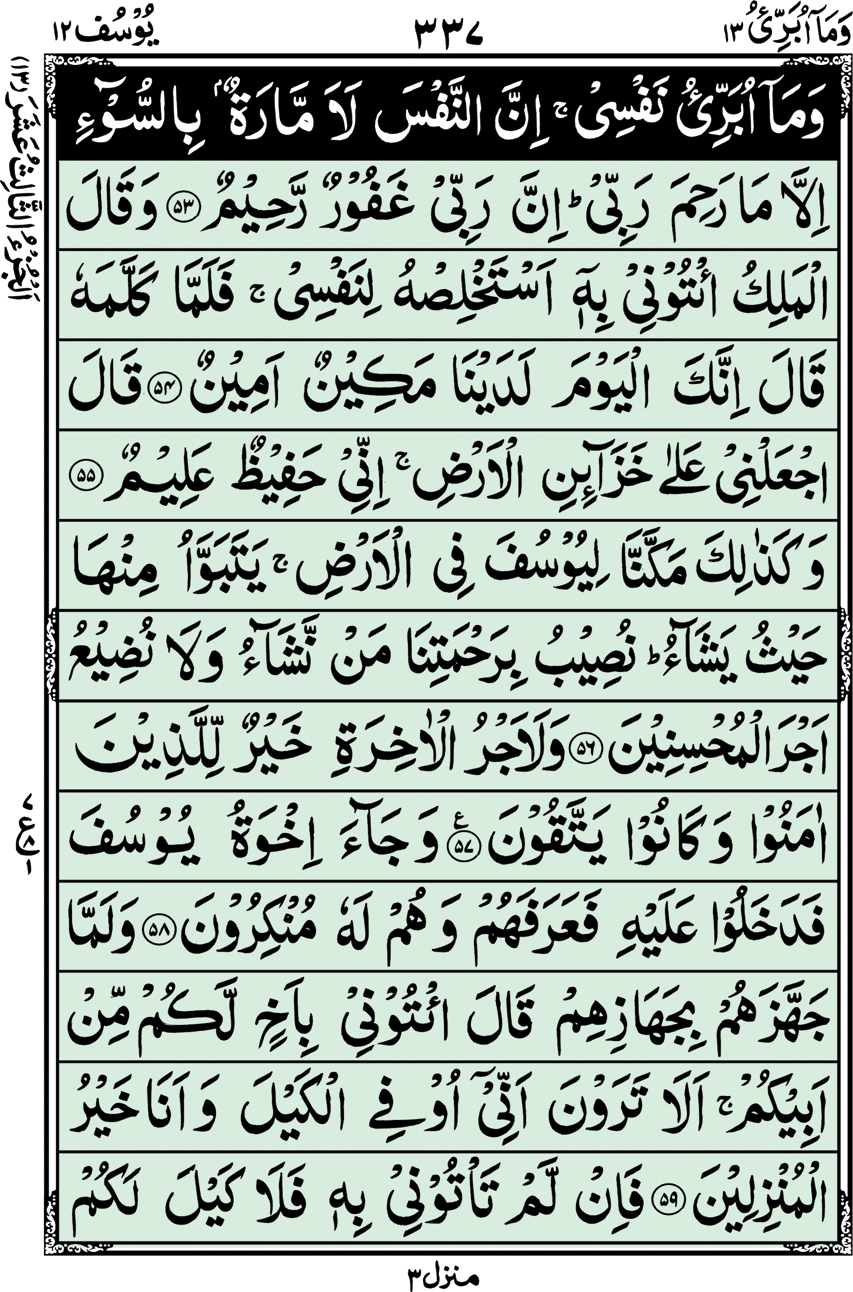 وَمَآ اُبَرِّئُ ١٣
٣٣٧
يُوْسُف ١٢
اَلْجُزْءُ الثَّالِثُ عَشَرَ (١٣)
وَمَآ اُبَرِّئُ نَفْسِیْ ۚ اِنَّ النَّفْسَ لَاَ مَّارَةٌۢ بِالسُّوْٓءِ
اِلَّا مَا رَحِمَ رَبِّیْ ؕ اِنَّ رَبِّیْ غَفُوْرٌ رَّحِیْمٌ ۝۵۳ وَقَالَ
الْمَلِكُ ائْتُوْنِیْ بِهٖۤ اَسْتَخْلِصْهُ لِنَفْسِیْ ۚ فَلَمَّا كَلَّمَهٗ
قَالَ اِنَّكَ الْیَوْمَ لَدَیْنَا مَكِیْنٌ اَمِیْنٌ ۝۵۴ قَالَ
اجْعَلْنِیْ عَلٰی خَزَآىِٕنِ الْاَرْضِ ۚ اِنِّیْ حَفِیْظٌ عَلِیْمٌ ۝۵۵
وَكَذٰلِكَ مَكَّنَّا لِیُوْسُفَ فِی الْاَرْضِ ۚ یَتَبَوَّاُ مِنْهَا
حَیْثُ یَشَآءُ ؕ نُصِیْبُ بِرَحْمَتِنَا مَنْ نَّشَآءُ وَلَا نُضِیْعُ
اَجْرَ الْمُحْسِنِیْنَ ۝۵۶ وَلَاَجْرُ الْاٰخِرَةِ خَیْرٌ لِّلَّذِیْنَ
اٰمَنُوْا وَكَانُوْا یَتَّقُوْنَ ۝۵۷ ع وَجَآءَ اِخْوَةُ یُوْسُفَ
فَدَخَلُوْا عَلَیْهِ فَعَرَفَهُمْ وَهُمْ لَهٗ مُنْكِرُوْنَ ۝۵۸ وَلَمَّا
جَهَّزَهُمْ بِجَهَازِهِمْ قَالَ ائْتُوْنِیْ بِاَخٍ لَّكُمْ مِّنْ
اَبِیْكُمْ ۚ اَلَا تَرَوْنَ اَنِّیْۤ اُوْفِی الْكَیْلَ وَاَنَا خَیْرُ
الْمُنْزِلِیْنَ ۝۵۹ فَاِنْ لَّمْ تَاْتُوْنِیْ بِهٖ فَلَا كَیْلَ لَكُمْ
منزل ٣